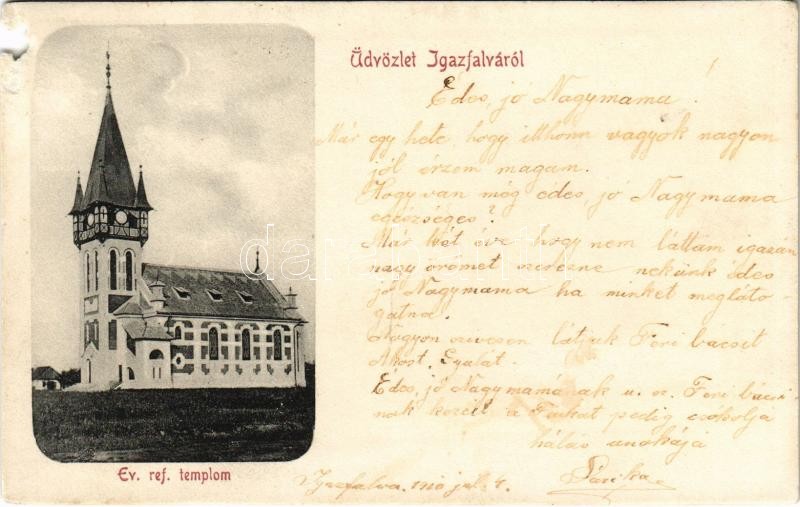 Üdvözlet Igazfalváról
Édes, jó Nagymama!
Már egy hete, hogy itthon vagyok nagyon
jól érzem magam.
Hogy van még édes, jó Nagymama
egészséges?
Már két éve hogy nem láttam igazán
nagy örömet szerezne nekünk édes
jó Nagymama ha minket megláto-
gatna.
Nagyon szivesen látjuk Feri bácsit
Ákost, Gyulát.
Édes, jó Nagymamának u. sz. Feri bácsi-
nak kezeit a pedig csókolja
hálás unokája
Igazfalva. 1910 jul. 4.
Ev. ref. templom
darabanth